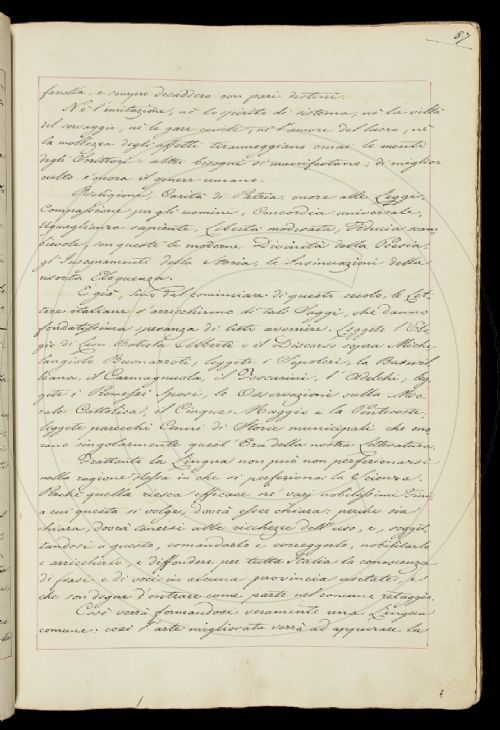 87
favella, e sempre decaddero con pari destini.
Nè l'imitazione, nè lo spirito di sistema, nè la viltà
del servaggio, nè le gare civili, nè l'amore del lucro, nè
la mollezza degli affetti tiranneggiano omai le menti
degli Scrittori: altri bisogni si manifestano, di miglior
culto s'onora il genere umano.
Religione, Carità di Patria, onore alle Leggi,
Compassione per gli uomini, Concordia universale,
Uguaglianza sapiente, Libertà moderata, Fiducia scam
bievole, son queste le moderne Divinità della Poesia,
gl'Insegnamenti della Storia, le Insinuazioni della
risorta Eloquenza.
E già, sino dal cominciare di questo secolo, le Let-
tere italiane s'arricchirono di tali Saggi, che danno
fondatissima speranza di lieto avvenire. Leggete l'Elo
gio di Leon Batista Alberti e il Discorso sopra Miche
langiolo Buonarroti, leggete i Sepolcri, la Basvil
liana, il Carmagnuola, il Foscarini, l'Adelchi, leg
gete i Promessi Sposi, le Osservazioni sulla Mo
rale Cattolica, il Cinque Maggio e la Pentecoste:
leggete parecchi Cenni di Storie municipali che ono
rano singolarmente quest'Era della nostra Letteratura.
Frattanto la Lingua non può non perfezionarsi
nella ragione stessa in che si perfeziona la Scienza.
Perchè quella riesca efficace ne' varj nobilissimi fini
a cui questa si volge, dovrà esser chiara: perchè sia
chiara, dovrà tenersi alle ricchezze dell'uso, e, sogget
tandosi a questo, comandarlo e correggerlo, nobilitarlo
e arricchirlo, e diffondere per tutta Italia la conoscenza
di frasi e di voci in alcuna provincia usitate, e
che son degne d'entrare come parte nel comune retaggio.
Così verrà formandosi veramente una Lingua
comune: così l'arte migliorata verrà ad acquistare la